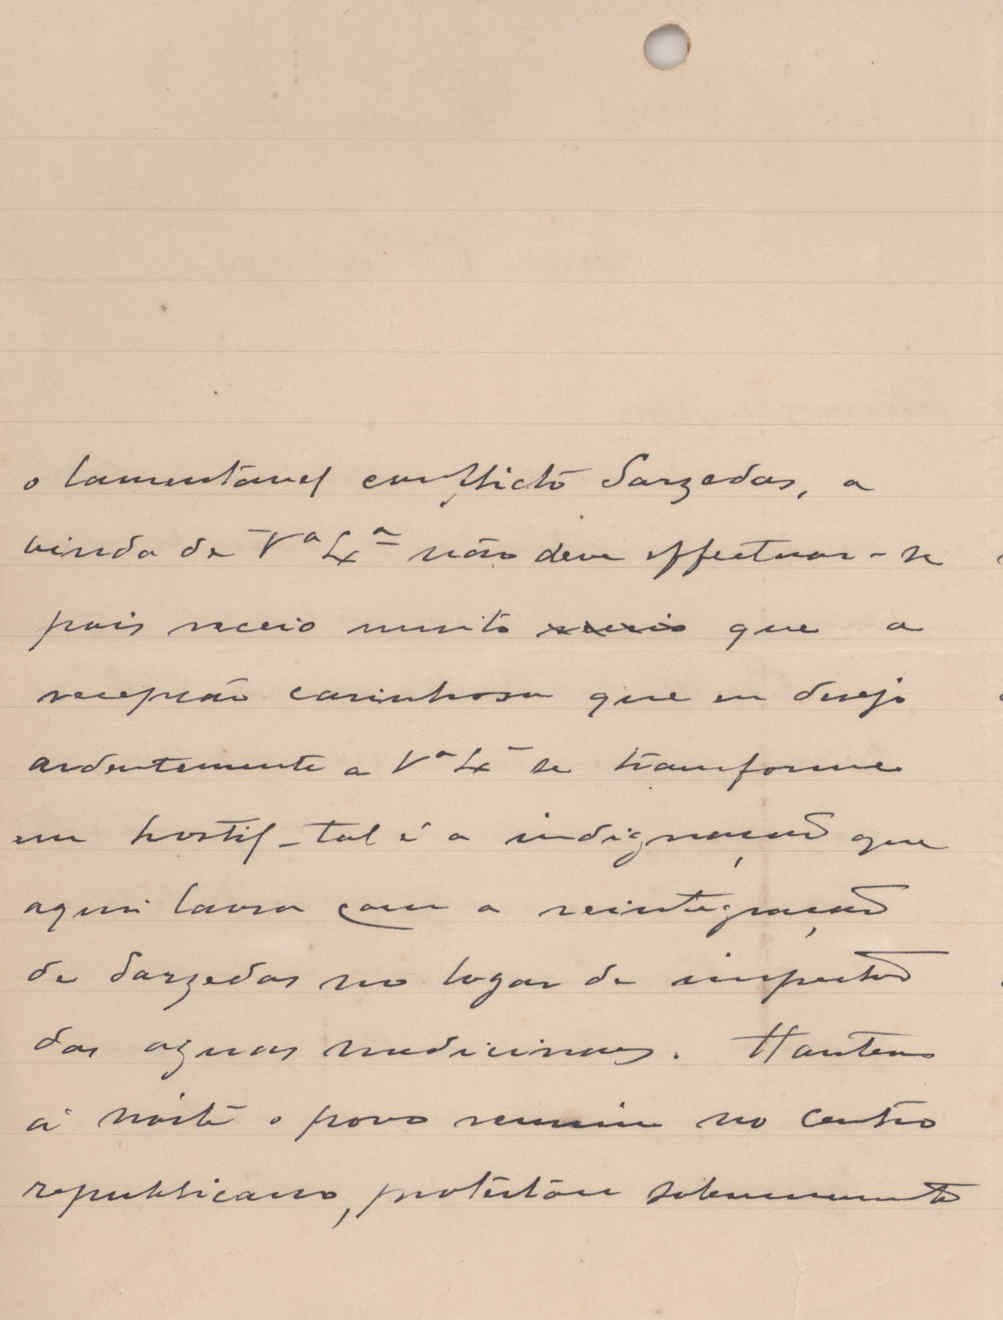 o lamentavel conflicto Sarzedas, a
vinda de Vª Exª não deve effectuar-se
pois receio muito receio que a
recepção carinhosa que eu desejo
ardentemente a Vª Exª se transforme
em hostil - tal é a indignação que
aqui lavra com a reintegração
de Sarzedas no logar de inspector
das aguas medicinaes. Hontem
á noite o povo reuniu no centro
republicano, protestou solemnemente